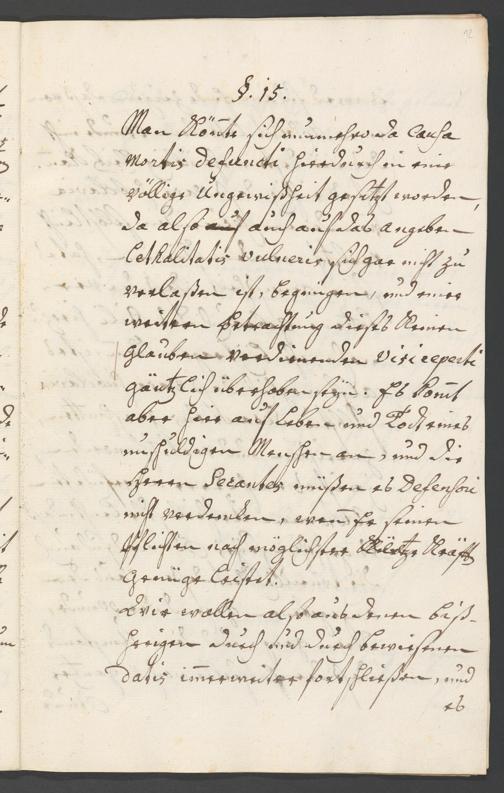 12
§. 15.
Man könte sich nunmehro da Causa
mortis defuncti hierdurch in eine
völlige Ungewißheit gesetzt worden,
da also auch auf das angeben
Lethalitatis vulneris sich gar nicht zu
verlaßen ist, begnügen, und einer
weitern betrachtung dieses keinen
glauben verdienenden Visi reperti
gäntzlich überhoben seyn. Es komt
aber hier auf Leben und Todt eines
unschuldigen Menschen an, und die
Herren Referenten müßen es Defensori
nicht verdencken, wenn Er seinen
Pflichten nach möglichster Kräfft
Genüge leistet.
Wir wollen also aus denen biß-
herigen durch und durch bewiesenen
datis immer weiter fortschließen, und
es